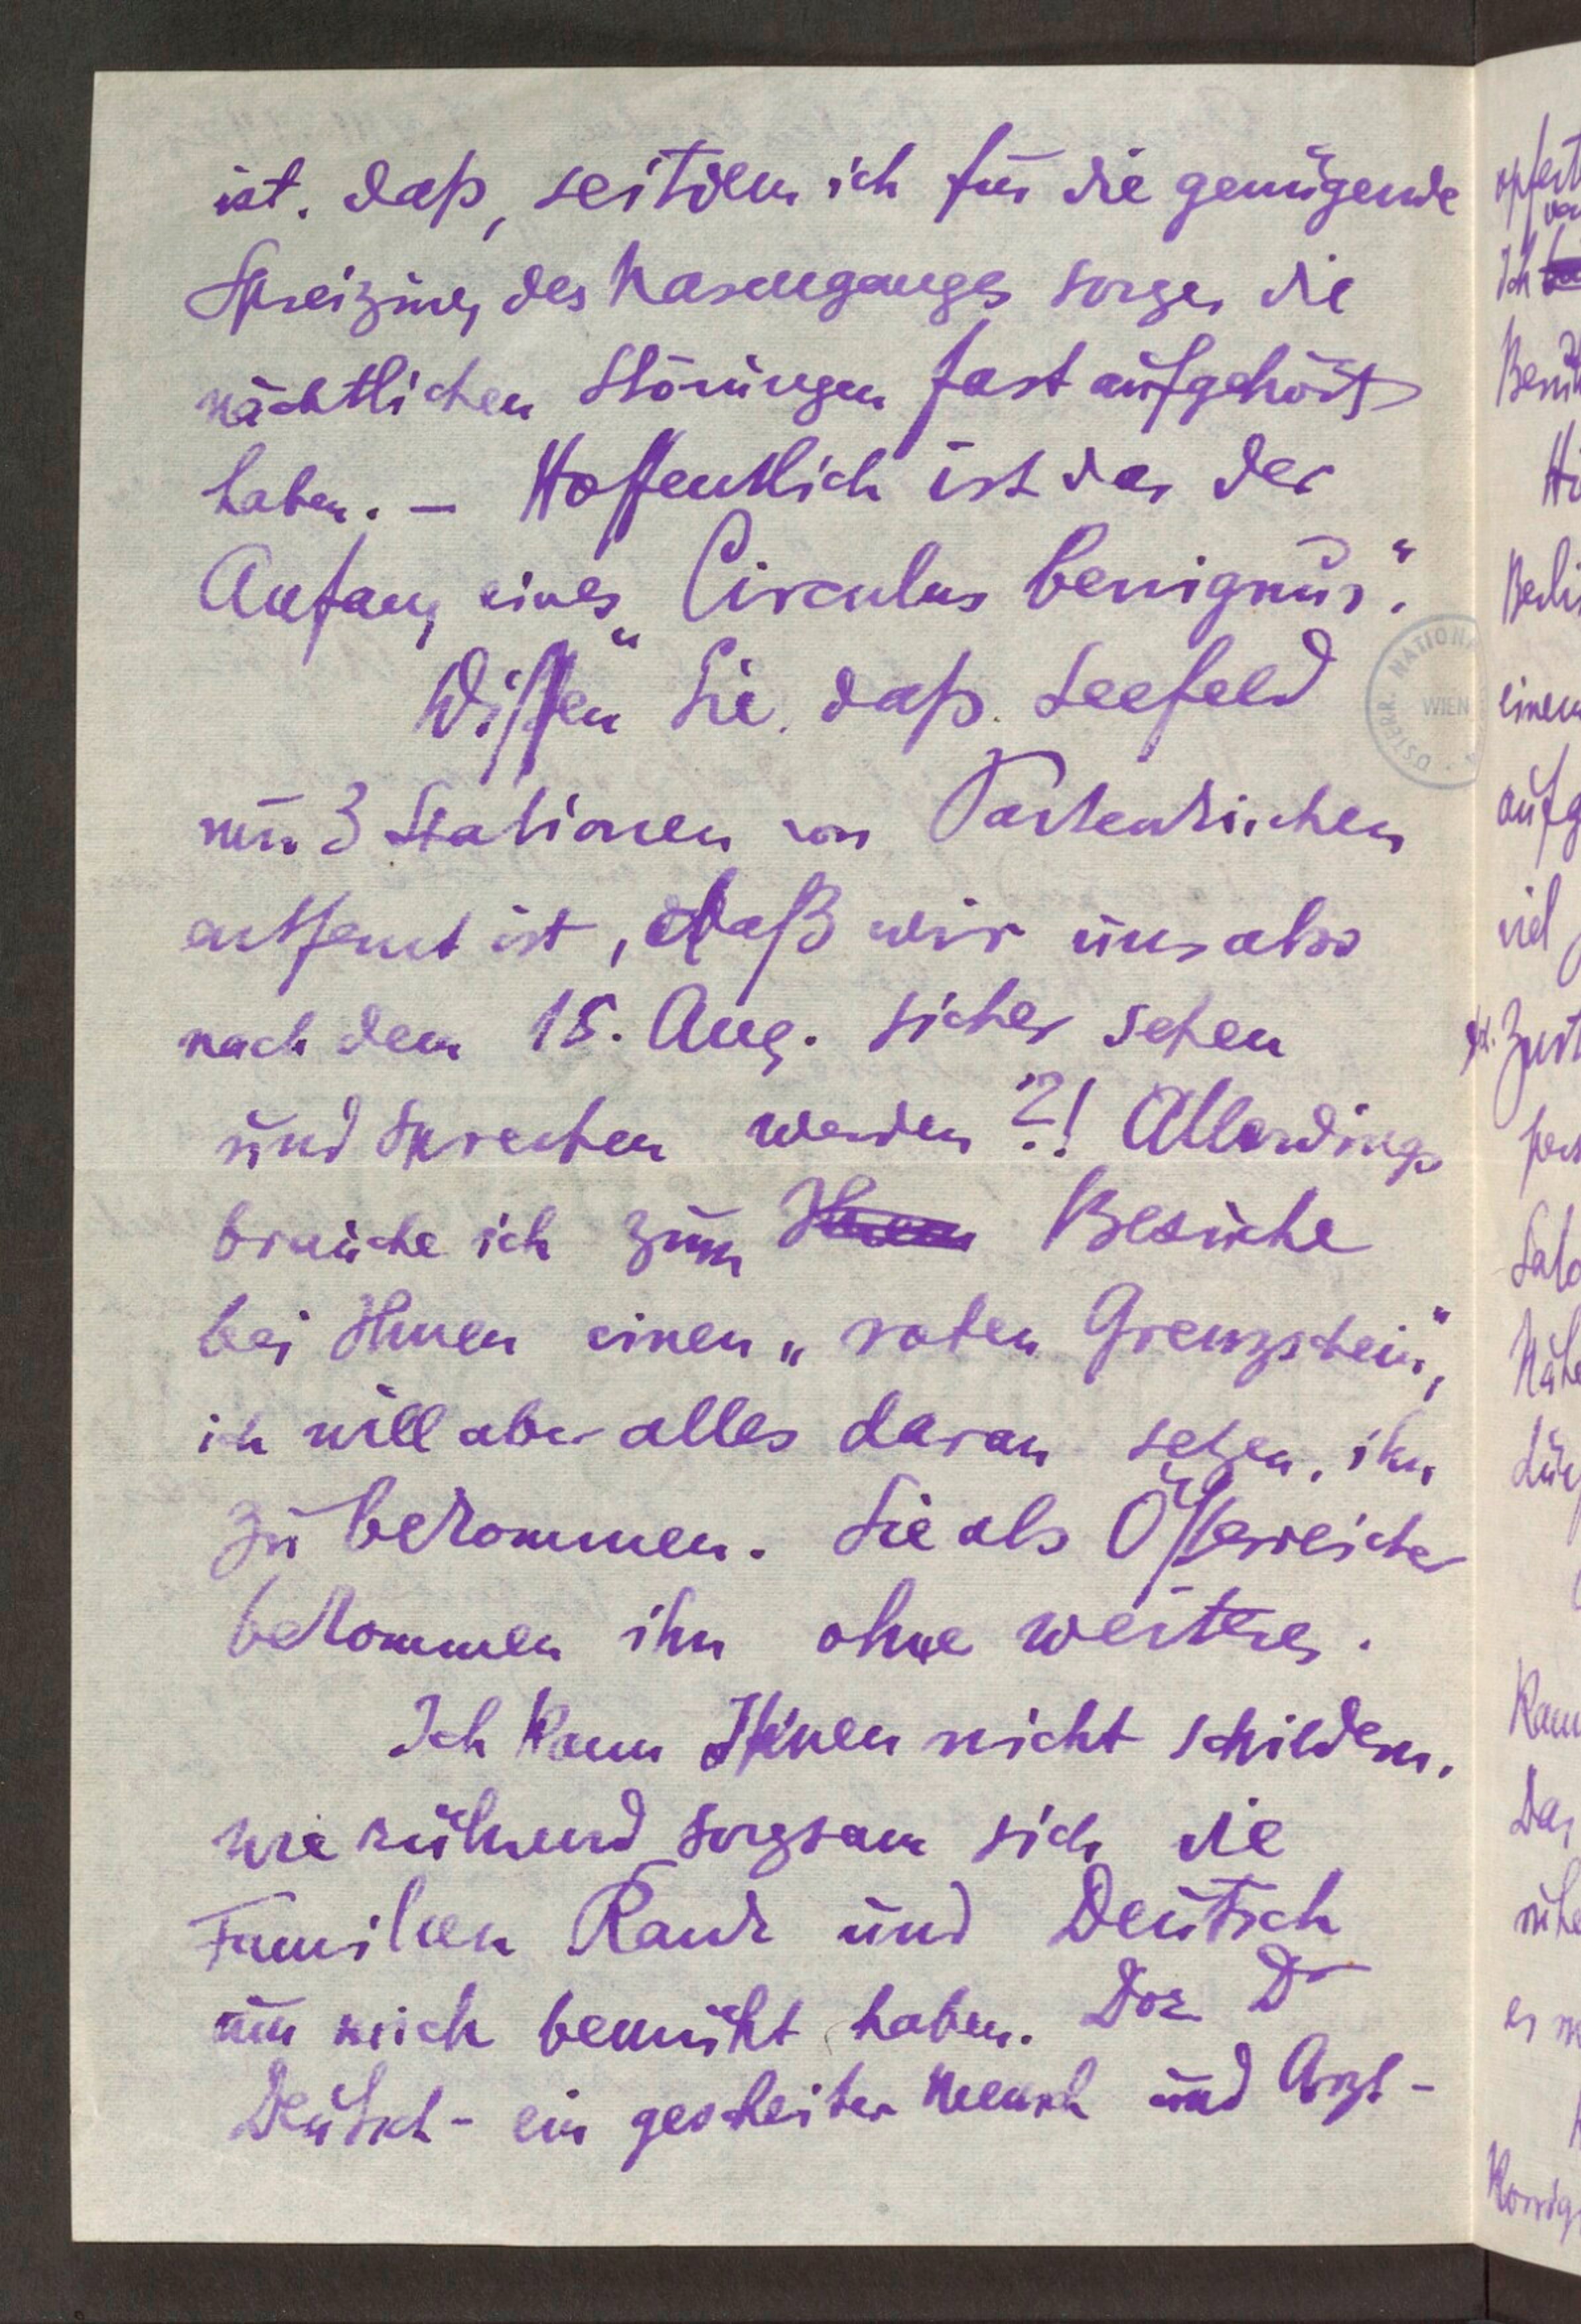 ist. daß, seitdem ich für die genügende
Spreizung des Nasenganges sorge, die
nächtlichen Störungen fast aufgehört
haben. – Hoffentlich ist das der
Anfang eines „Circulus benignus“.
Wissen Sie, daß Seefeld
nur 3 Stationen von Partenkirchen
entfernt ist, daß wir uns also
nach dem 15. Aug. sicher sehen
und sprechen werden?! Allerdings
brauche ich zum Besuche
bei Ihnen einen „roten Grenzschein“,
ich will aber alles daran setzen, ihn
zu bekommen. Sie als Österreicher
bekommen ihn ohne weiteres.
Ich kann Ihnen nicht schildern,
wie rührend sorgsam sich die
Familien Rank und Deutsch
um mich bemüht haben. Doz Dr
Deutsch – ein gescheiter Mensch und Arzt –
ÖSTERR. NATION
WIEN